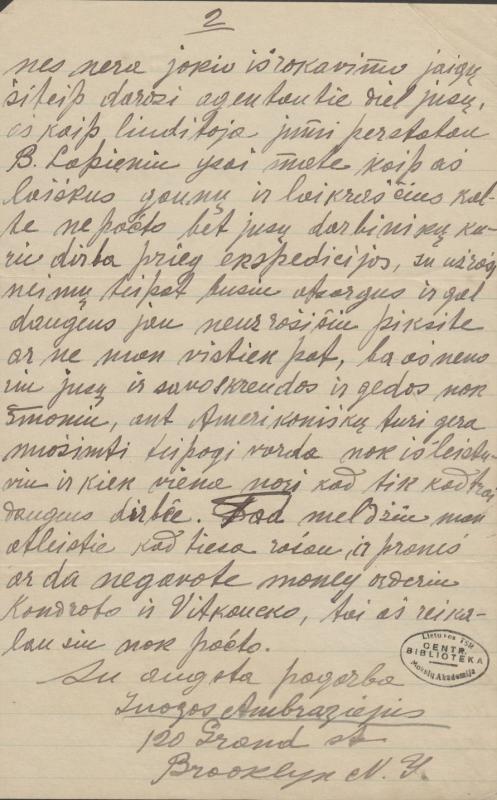 2
nes nera jokiu išrokavimo jaigu
šiteip darosi agentautie diel jusų,
aš kaip liuditoja jumi perstatau
B. Lapieniu ypai mate kaip aš
laiškus gaunų ir laikraščius kal-
te ne pačto bet jusų darbinikų ku-
rie dirba prieg ekspedicijos, su užraš
neimų teipat busiu atsargus ir gal
daugeus jau neužrašisiu piksite
ar ne man vistiek pat, ba aš neno
riu jusų ir savo skreudos ir gedos nok
žmoniu, ant Amerikoniškų turi gera
teipogi varda nok išleistu-
viu ir kiek viena kad tik kad
daugeus dirbte. Tad meldžiu man
atleistie kad tiesa rašau, ir praneš
ar da negavote money orderiu
Kondroto ir Vitkaucko, tai aš reika-
lausiu nok pačto.
Su augšta pagarba
Juozos Ambraziejus
120 Grand st
Brooklyn N. Y.
Lietuvos TSR
CENTR.
BIBLIOTEKA
Mokslų Akademija